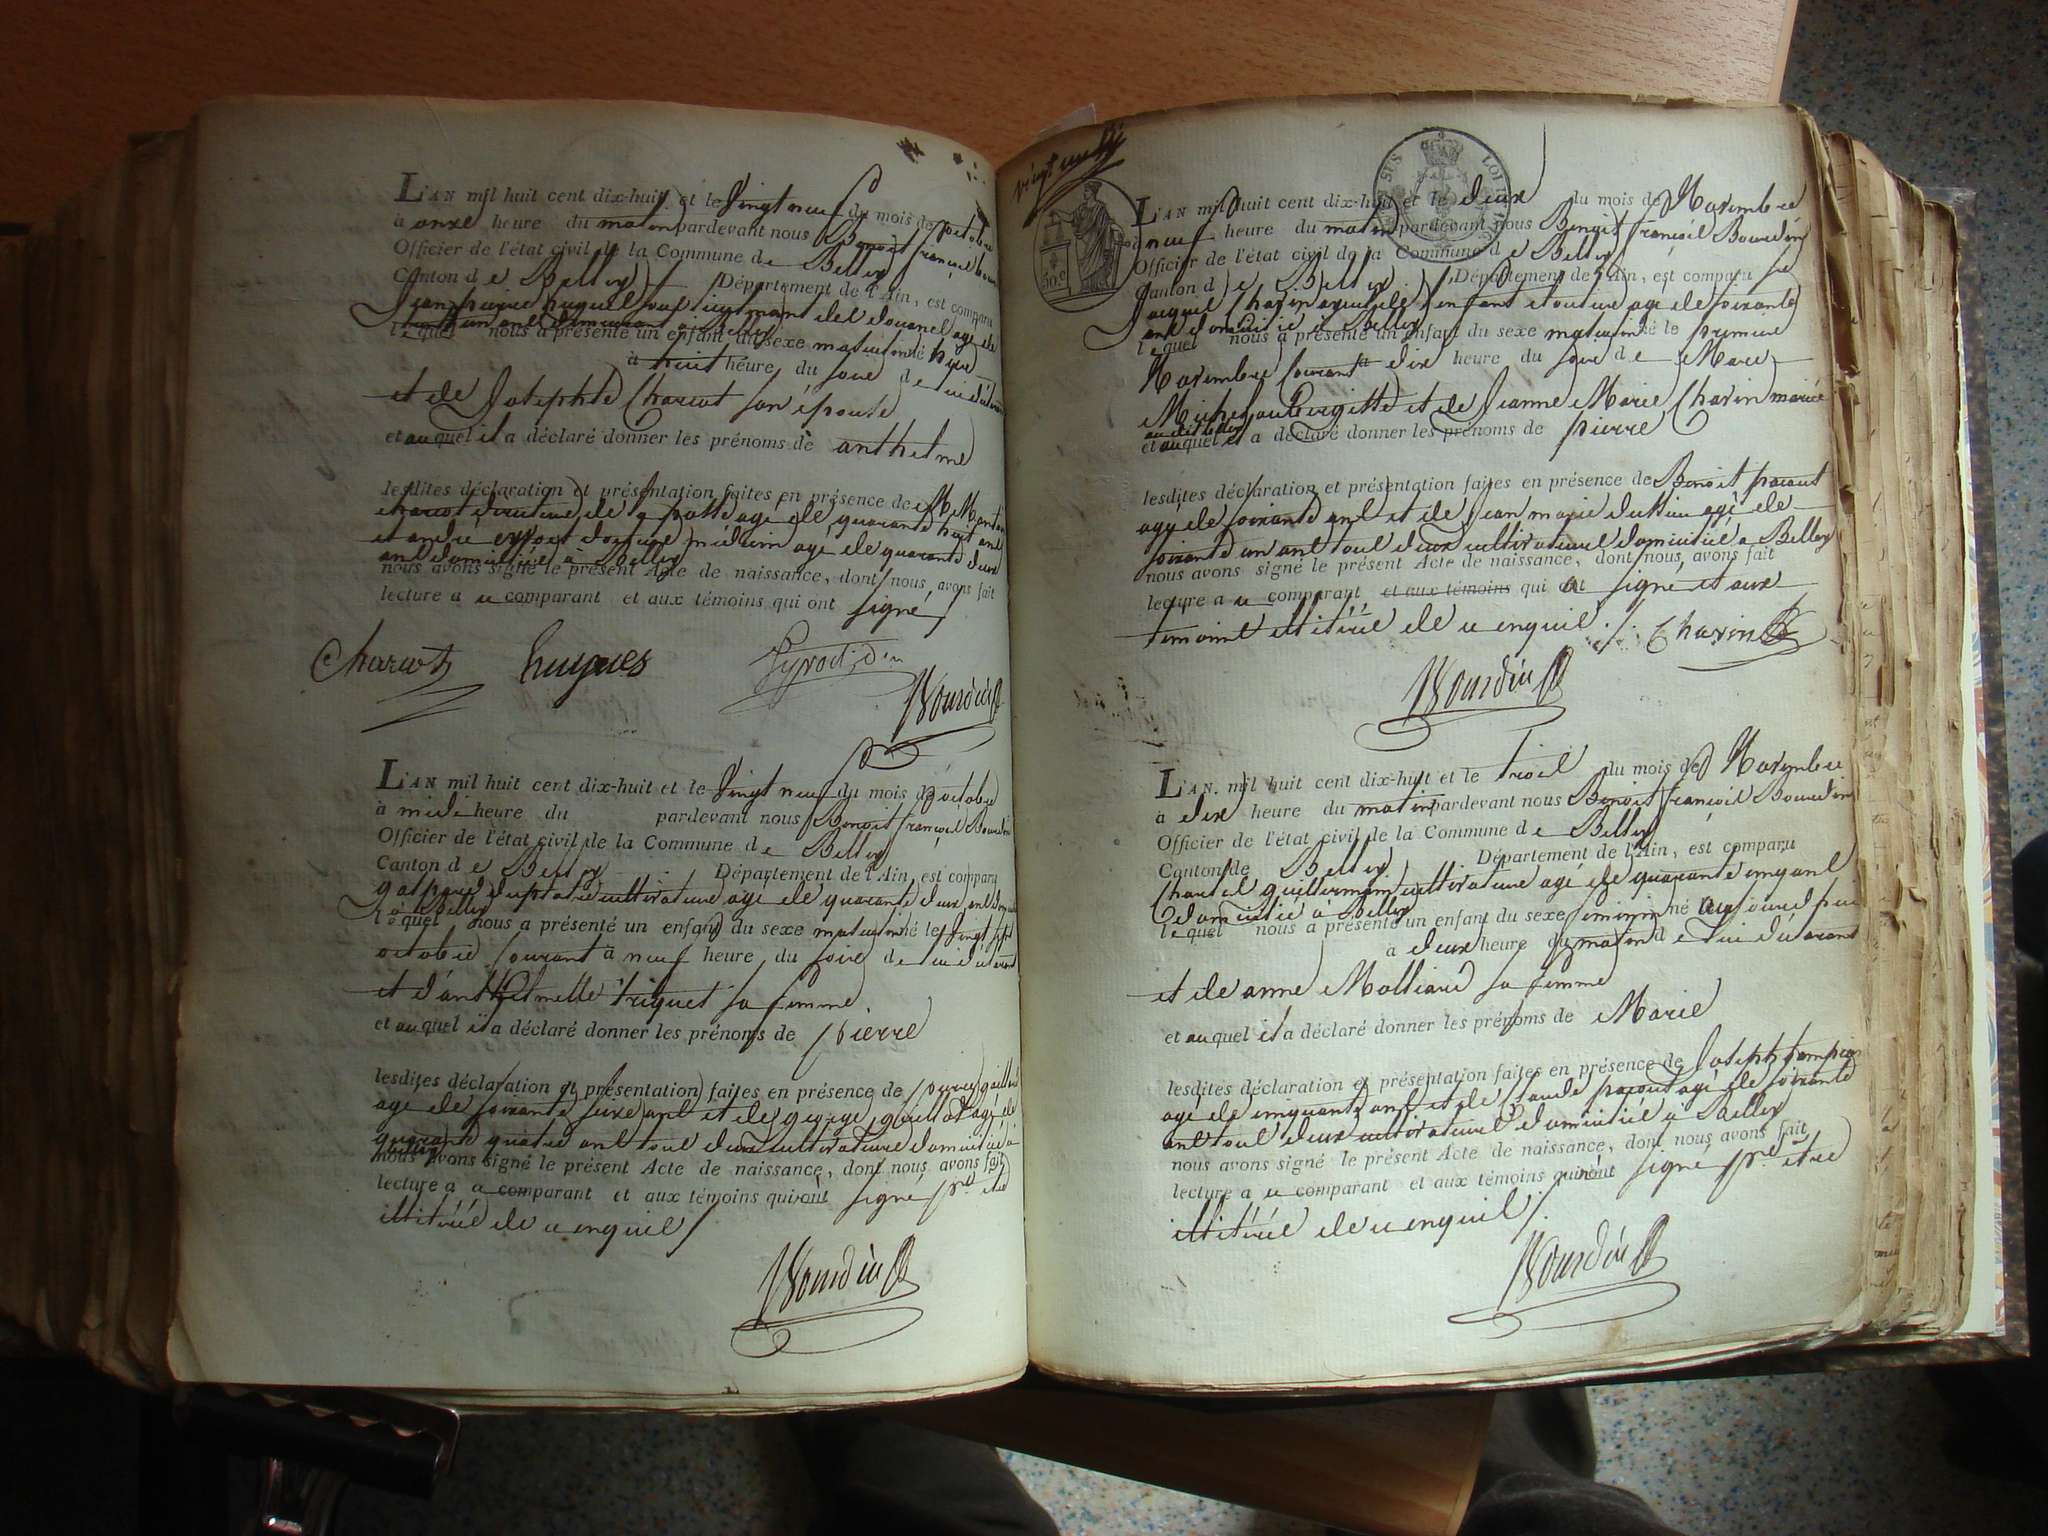 L'AN mil huit cent dix-huit et le vingt neuf du mois de octobre
à onze heure du matin pardevant nous Benoit françois
Officier de l'état civil de la Commune de Belley
Canton de Belley Département de l'Ain, est comparu
Jean pierre hugues sous lieutenant des douanes agé de
domicilié à Belley
lequel nous a présenté un enfant du sexe masculin né hyer
à huit heure du soir de lui déclarant
et de Josephte Charcot son épouse
et auquel il a déclaré donner les prénoms de anthelme
lesdites déclaration et présentation faites en présence de M.
charcot agé de quarante huit ans
et andre docteur médecin agé de quarante deux
ans domiciliés à Belley
nous avons signé le présent Acte de naissance, dont nous avons fait
lecture a ce comparant et aux témoins qui ont signé
Charcot hugues Bourdin
L'AN mil huit cent dix-huit et le vingt neuf du mois de octobre
à midi heure du pardevant nous Benoit françois Bourdin
Officier de l'état civil de la Commune de Belley
Canton de Belley Département de l'Ain, est comparu
gaspard cultivateur agé de quarante deux ans
à Belley
lequel nous a présenté un enfant du sexe masculin né le vingt sept
octobre courant à neuf heure du soir de lui déclarant
et d'anthelmette triquet sa femme
et auquel il a déclaré donner les prénoms de pierre
lesdites déclaration et présentation faites en présence de pierre
agé de soixante seize ans et de george agé de
quarante quatre ans tous deux cultivateurs domiciliés à
Belley
nous avons signé le présent Acte de naissance, dont nous avons fait
lecture a ce comparant et aux témoins qui ont signé
illitérés de ce enquis
Bourdin
vingt
50 c
L'AN mil huit cent dix-huit et le deux du mois de Novembre
à neuf heure du matin pardevant nous Benoit françois Bourdin
Officier de l'état civil de la Commune de Belley
Canton de Belley Département de l'Ain, est comparu
Jacques Chavin agé de soixante
ans domicilié à Belley
lequel nous a présenté un enfant du sexe masculin né le premier
Novembre courant à dix heure du soir de Marc
Michel aubergiste et de Jeanne Marie Chavin mariés
audit Belley
et auquel il a déclaré donner les prénoms de pierre
lesdites déclaration et présentation faites en présence de Benoit paient
agé de soixante ans et de Jean marie agé de
soixante un ans tous deux cultivateurs domiciliés à Belley
nous avons signé le présent Acte de naissance, dont nous avons fait
lecture a ce comparant et aux témoins qui a signé et aux
témoins illitérés de ce enquis Chavin
Bourdin
L'AN mil huit cent dix-huit et le trois du mois de Novembre
à dix heure du matin pardevant nous Benoit françois Bourdin
Officier de l'état civil de la Commune de Belley
Canton de Belley Département de l'Ain, est comparu
Charles guillermin cultivateur agé de quarante cinq ans
domicilié à Belley
lequel nous a présenté un enfant du sexe feminin né aujourd'hui
à deux heure du matin de lui déclarant
et de anne Molliard sa femme
et auquel il a déclaré donner les prénoms de Marie
lesdites déclaration et présentation faites en présence de Joseph
agé de cinquante ans et de Claude paient agé de soixante
ans tous deux cultivateurs domiciliés à Belley
nous avons signé le présent Acte de naissance, dont nous avons fait
lecture a ce comparant et aux témoins qui n'ont signé pr. etre
illitérés de ce enquis
Bourdin